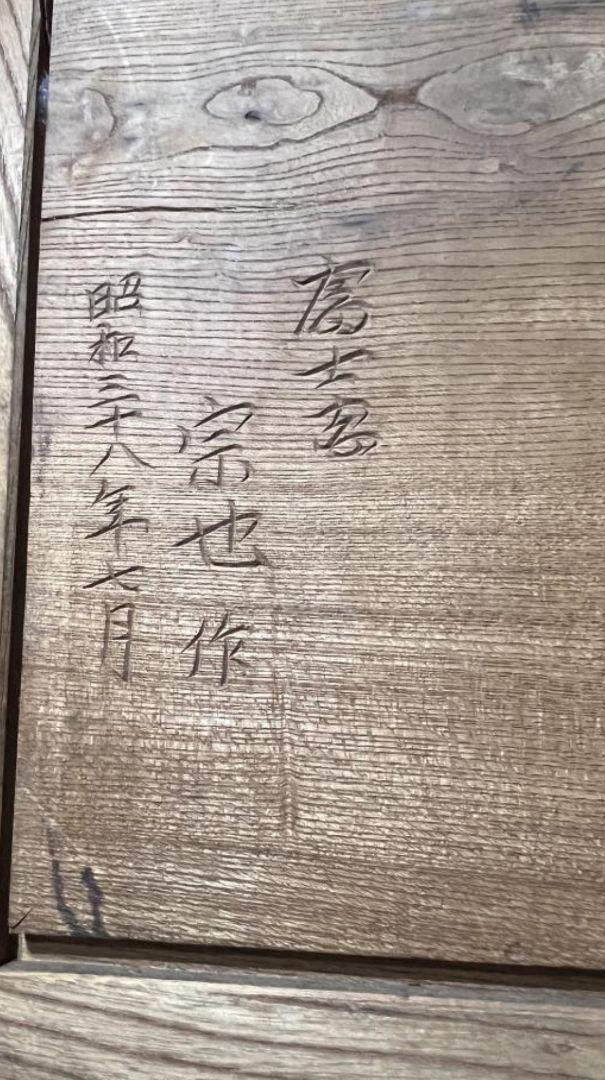 富士
宗也 作
昭和三十八年七月